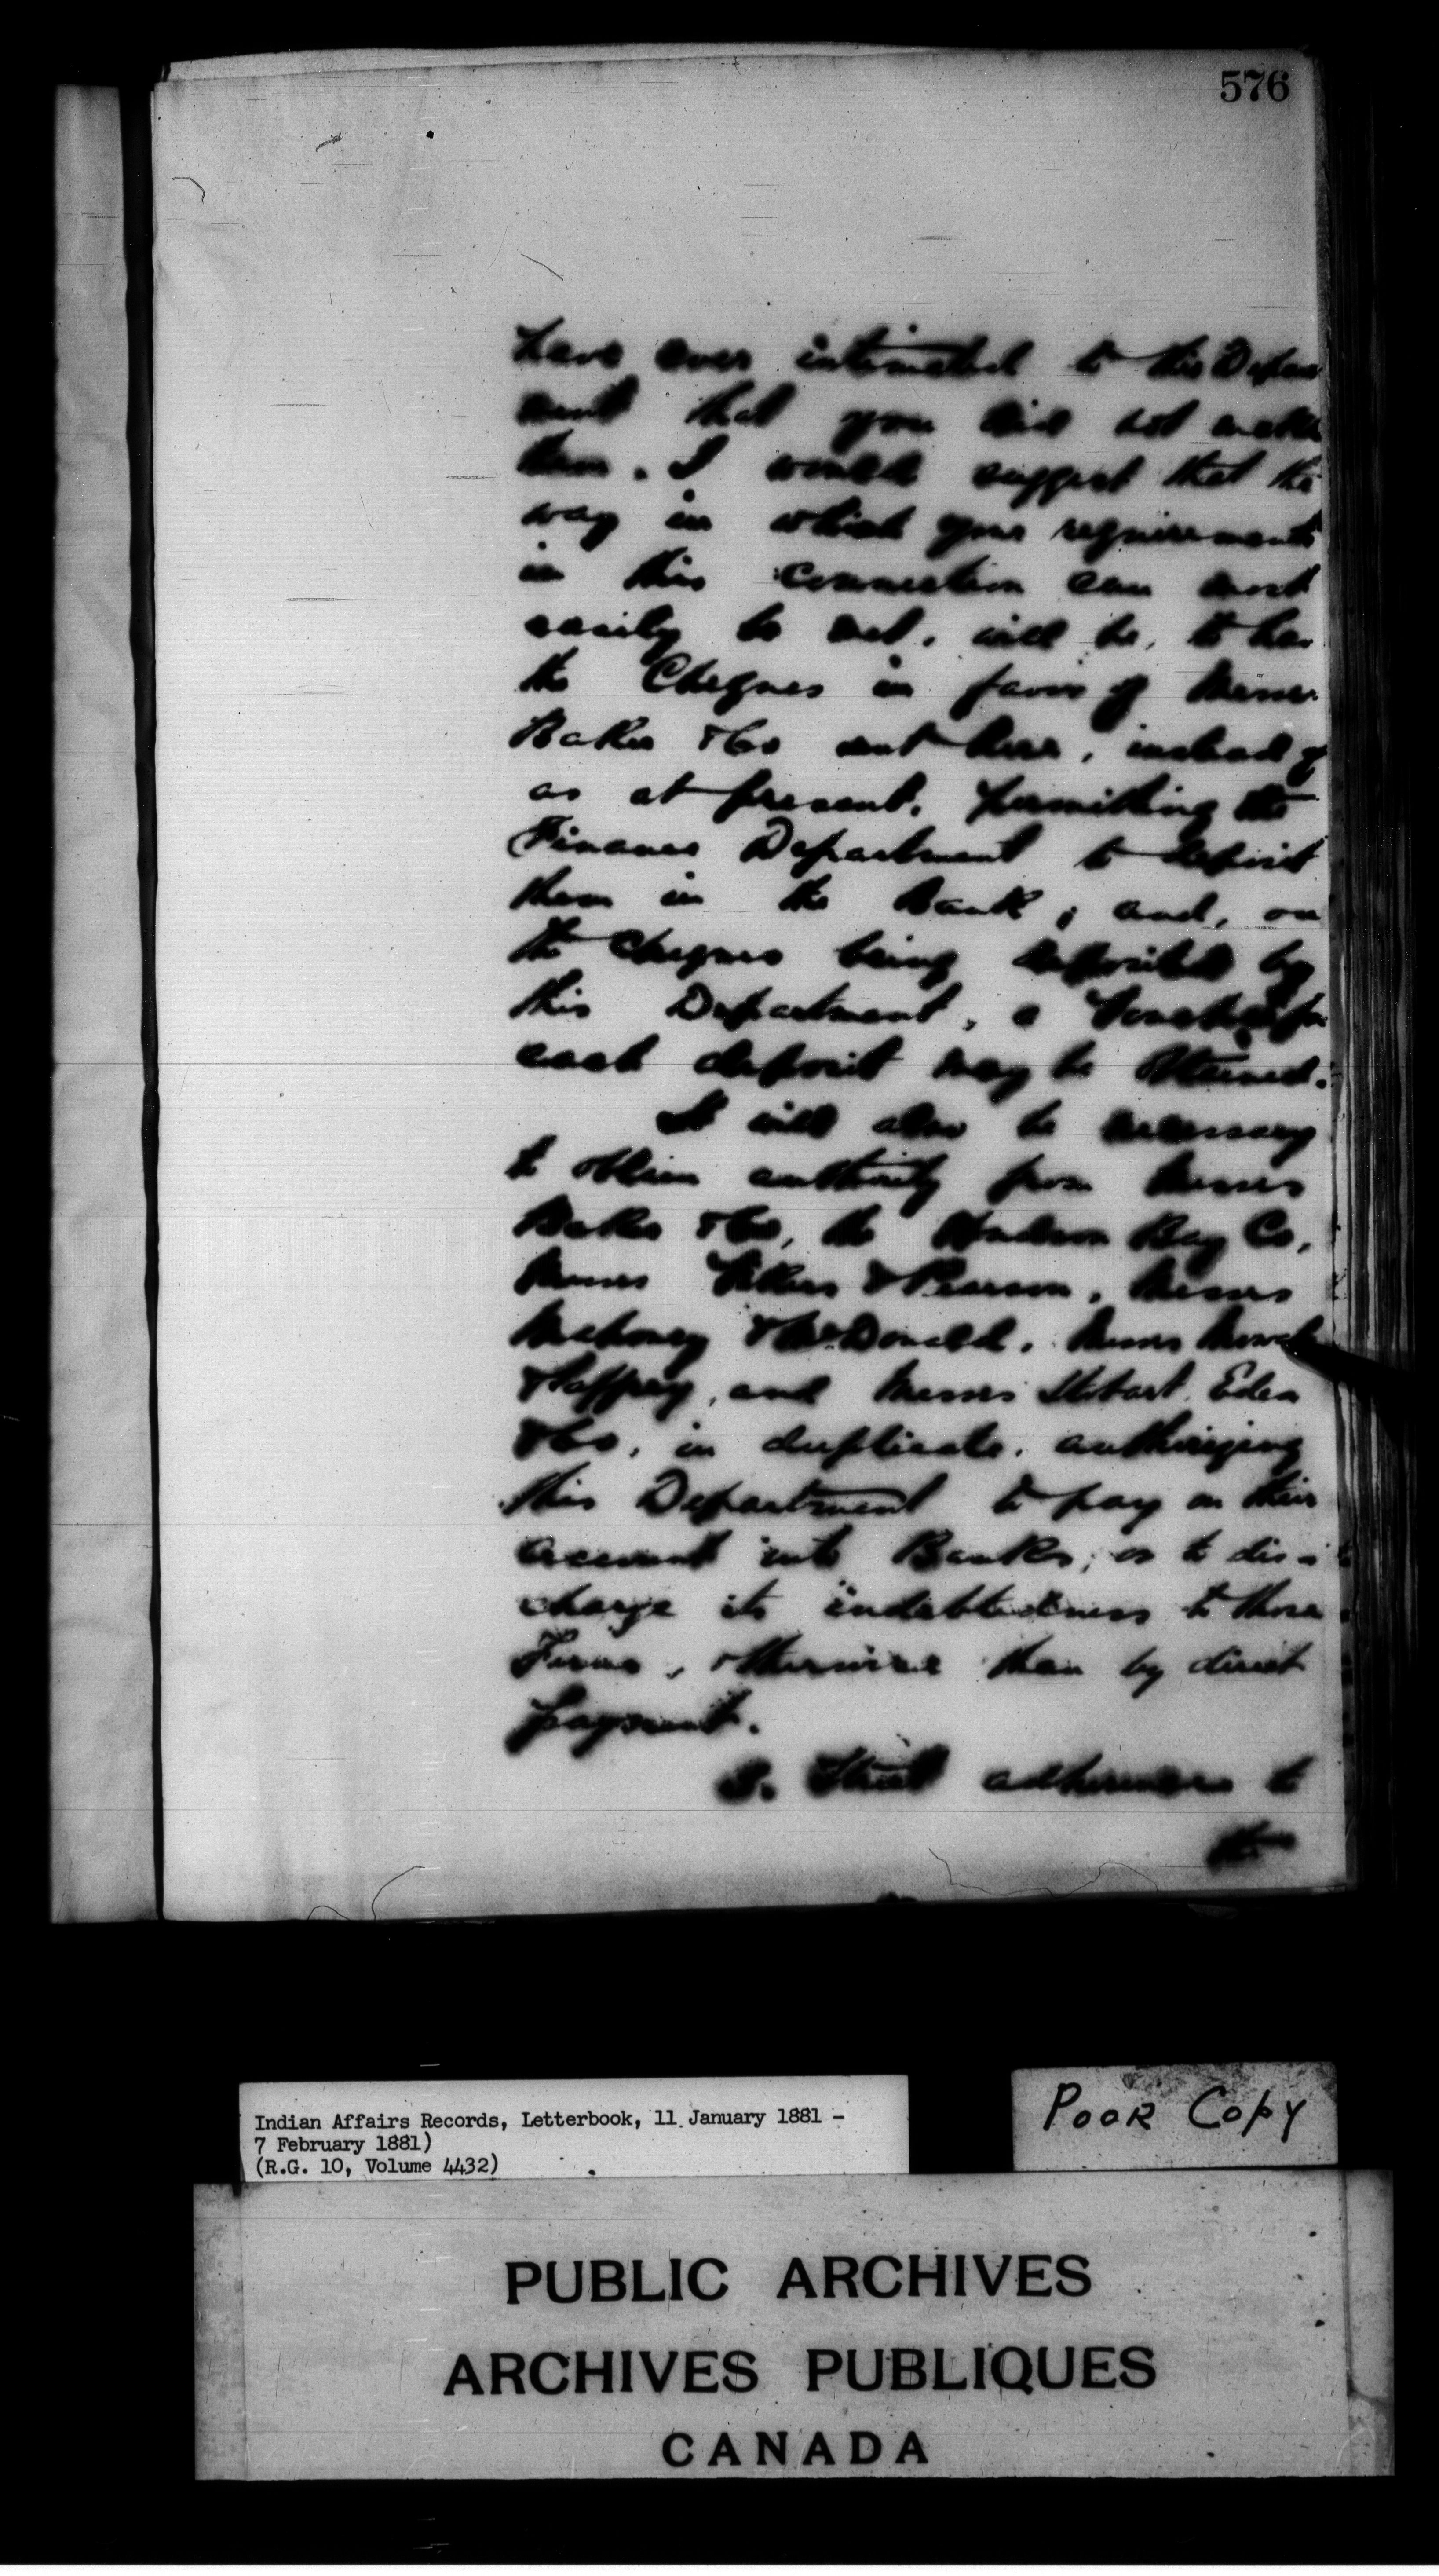 576
have ever intimated to this Depart
ment that you did not make
them. I would suggest that the
way in which your requirements
in this connection can most
easily be met, will be, to have
the Cheques in favor of Messrs
Baker & Co sent here, instead of
as at present, permitting the
Finance Department to deposit
them in the Bank; and, on
the cheques being deposited by
this Department, a Voucher for
each deposit may be obtained.
It will also be necessary
to obtain authority from Messrs
Baker & Co, the Hudson Bay Co,
Messrs & Pearson, Messrs
Mahoney & McDonald, Messrs
, and Messrs Stobart Eden
& Co, in duplicate, authorizing
this Department to pay on their
account into Banks, or to dis-
charge its indebtedness to those
Firms, otherwise than by direct
payment.
3. Strict adherence to
the
Indian Affairs Records, Letterbook, 11 January 1881 -
7 February 1881)
(R.G. 10, Volume 4432)
POOR COPY
PUBLIC ARCHIVES
ARCHIVES PUBLIQUES
CANADA